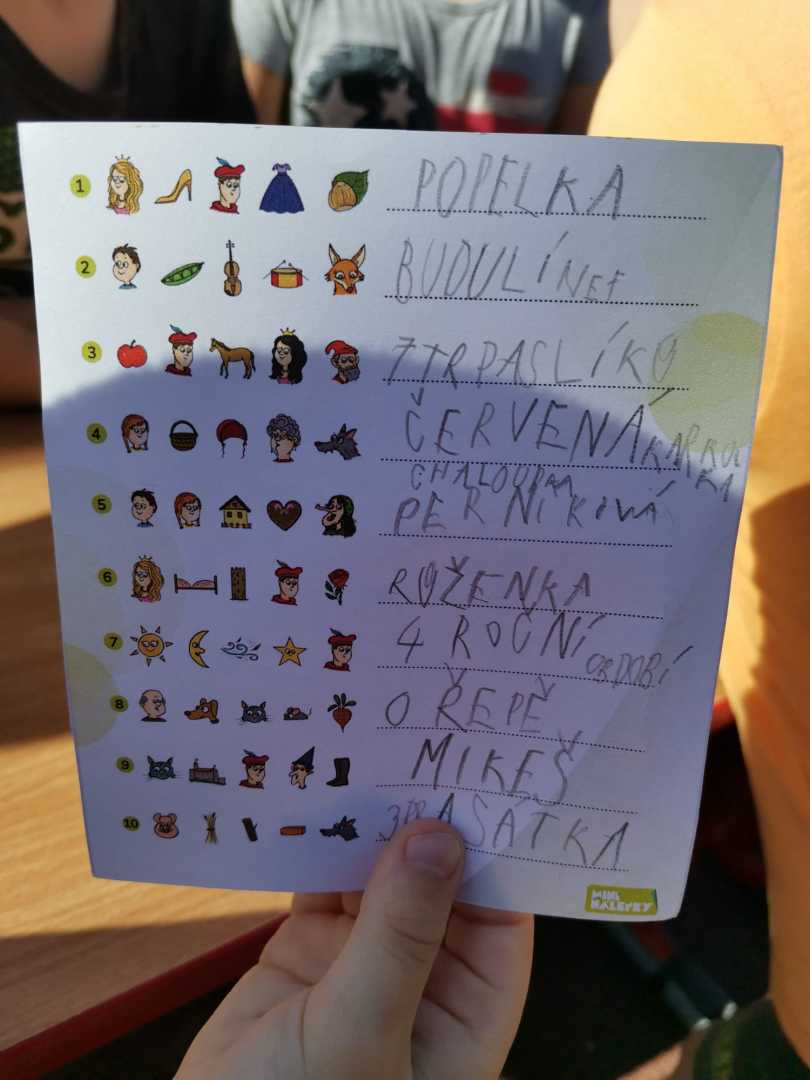 1 POPELKA
2 BUDULÍNEK
3 7 TRPASLÍKŮ
4 ČERVENÁ KARKU
KA
CHALOUPKA
5 PERNÍKOVÁ
6 RŮŽENKA
7 4 ROČNÍ
OBDOBÍ
8 O ŘEPĚ
9 MIKEŠ
10 3 PRASÁTKA
MINI
NÁLEPKY